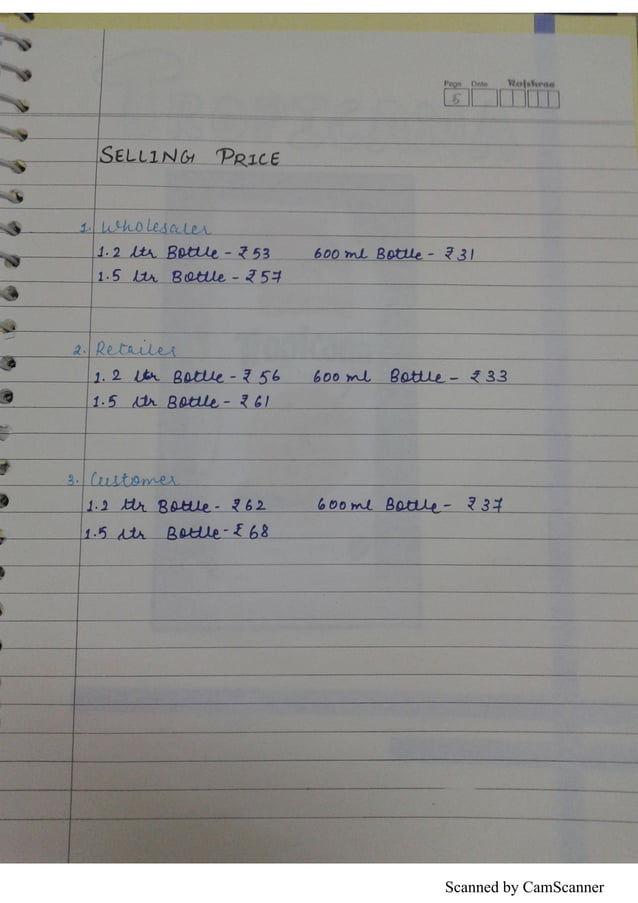 Page Date Rajshree
5
SELLING PRICE
1. Wholesaler
1.2 ltr Bottle - ₹53 600 ml Bottle - ₹31
1.5 ltr Bottle - ₹57
2. Retailer
1.2 ltr Bottle - ₹56 600 ml Bottle - ₹33
1.5 ltr Bottle - ₹61
3. Customer
1.2 ltr Bottle - ₹62 600 ml Bottle - ₹37
1.5 ltr Bottle - ₹68
Scanned by CamScanner